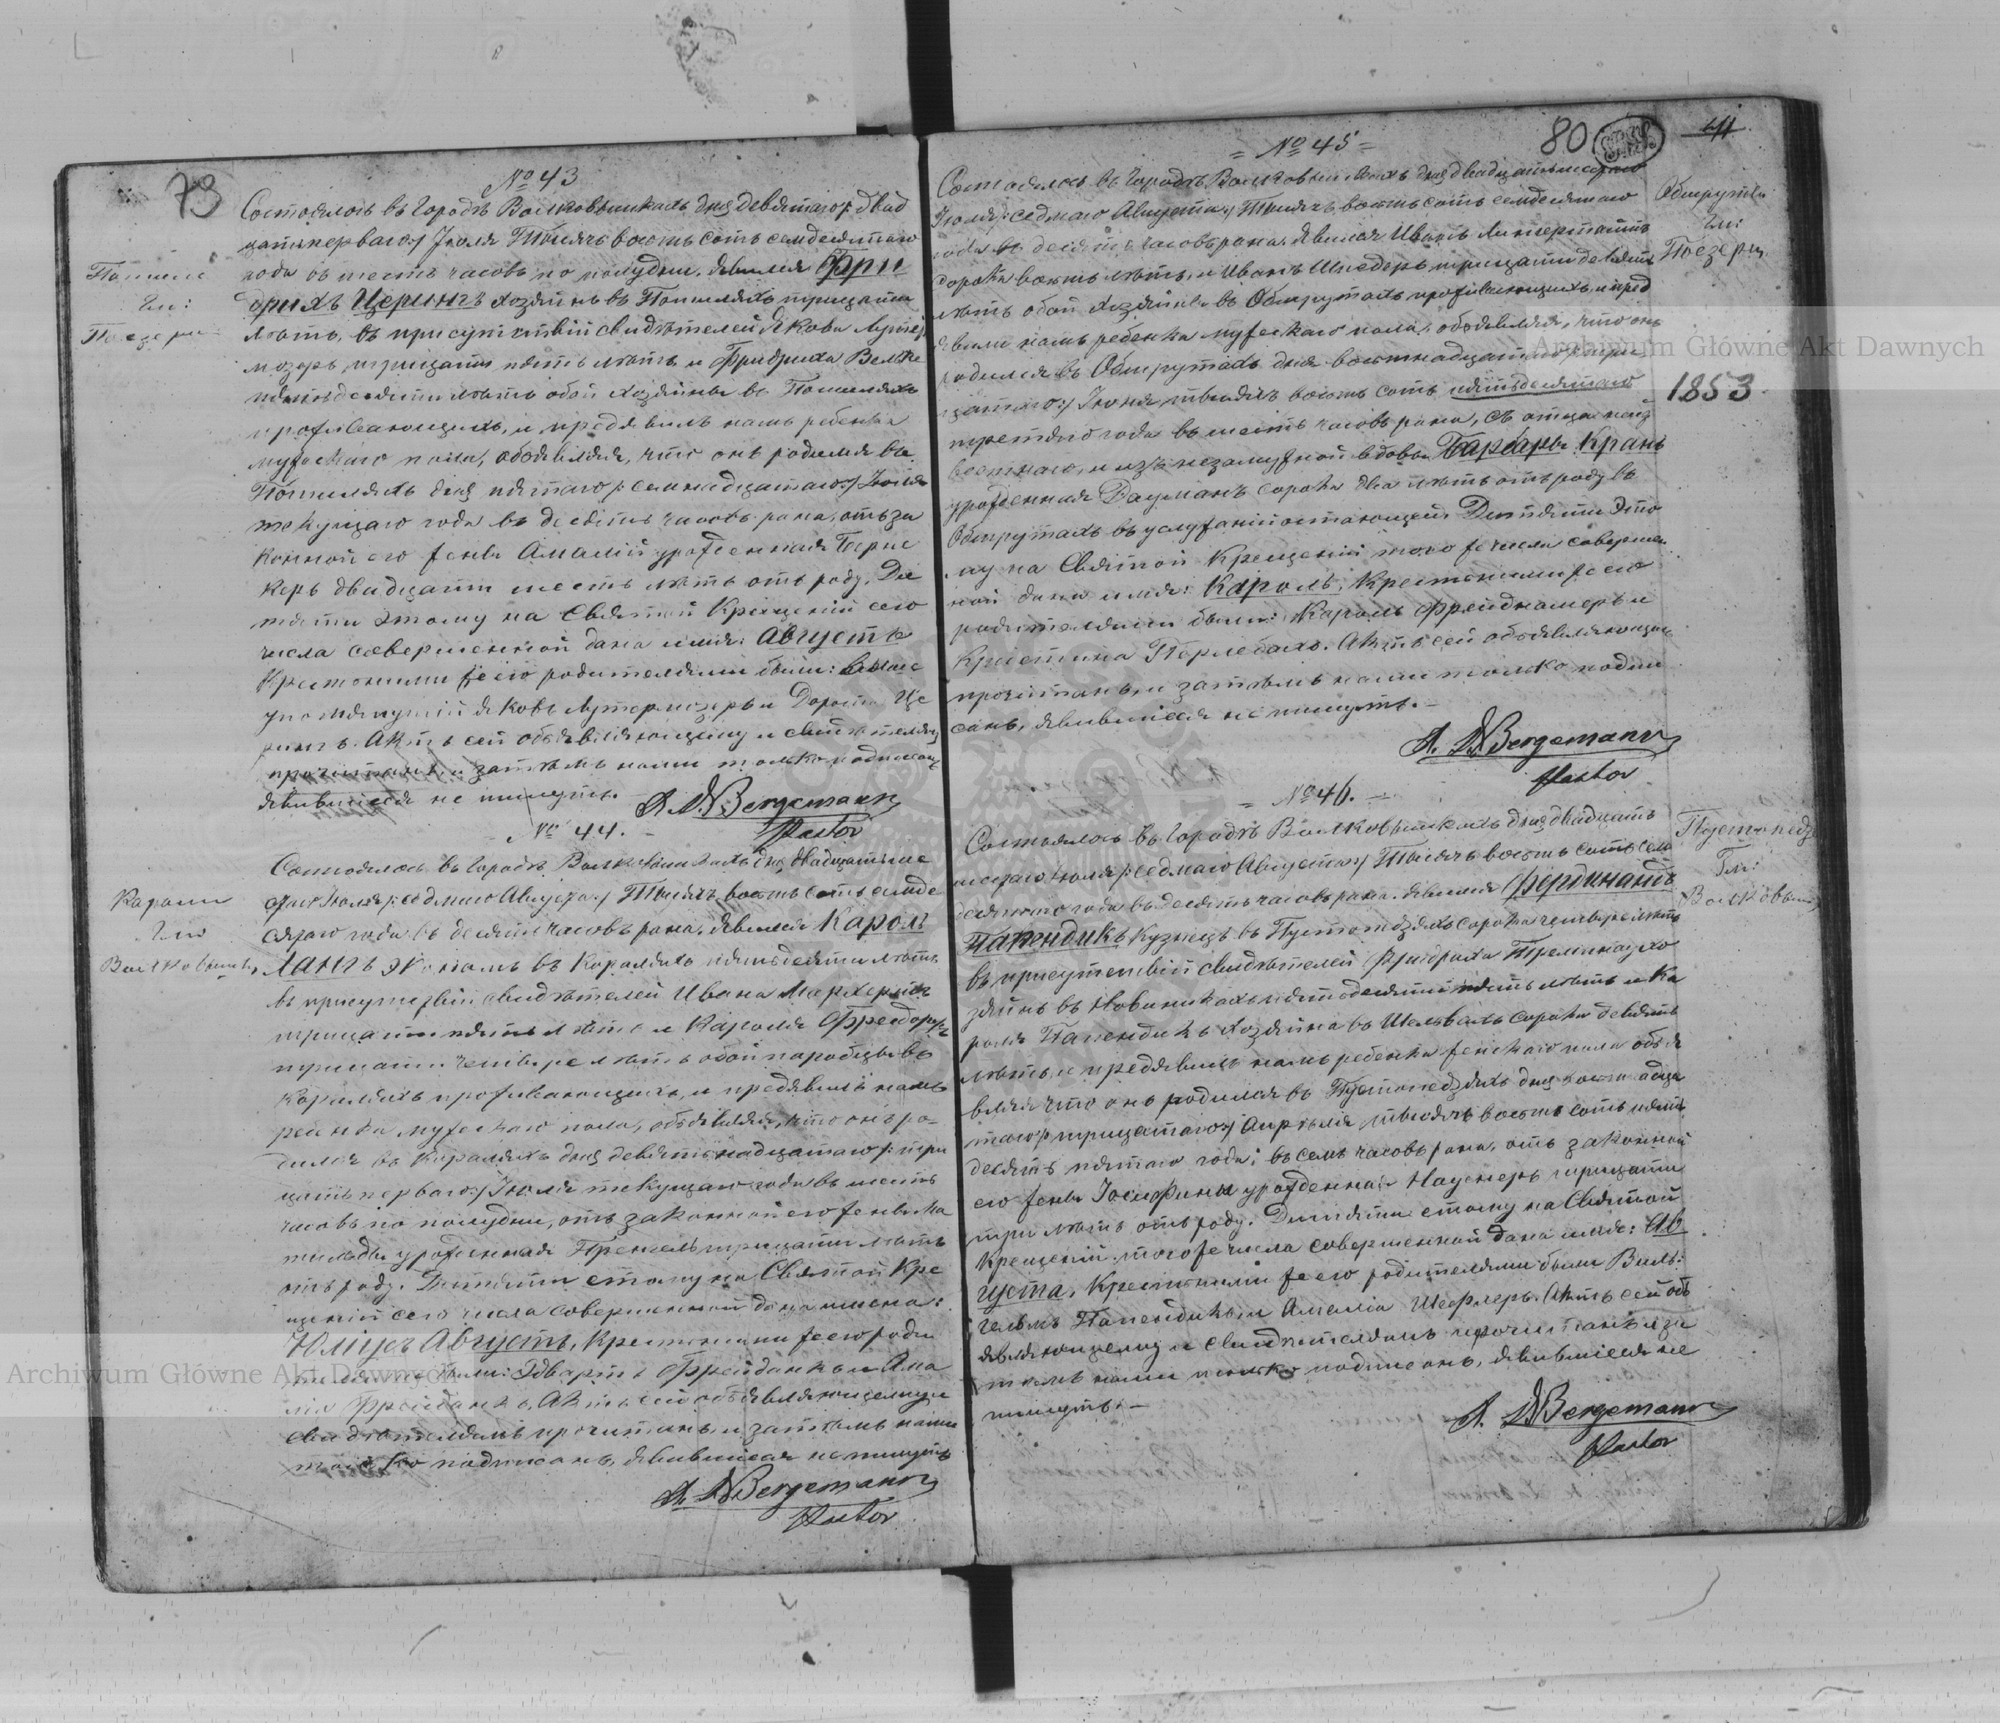 79
№ 43
Состоялось въ Городѣ Волковышкахъ дня девятаго /: двад
цать перваго :/ Іюля Тысяча восемь сотъ семдесятаго
года въ шесть часовъ по полудни. Явился Фри
дрихъ Церингъ хозяинъ въ Пошиляхъ трицати
лѣтъ, въ присутствіи свидѣтелей Якова Лутер
мозеръ, трицати пять лѣтъ, и Фридриха Вельке
пятьдесяти лѣтъ обой хозяины въ Пошиляхъ
проживающихъ, и предявилъ намъ ребенка
мужескаго пола, объявляя, что онъ родился въ
Пошиляхъ дня пятаго /: семнадцатаго :/ Іюля
текущаго года въ десять часовъ рана, отъ за
конной его жены Амаліи урожденная
керъ двадцати шесть лѣтъ отъ роду. Ди
тяти этому на Святой Крещеніи сего
числа совершенной дана имя: Августъ
Крестными же его родителями были: выше
упомянутый Яковъ Лутермозеръ и Дорота Це
рингъ. Актъ сей объявляющему и свидѣтелямъ
прочитанъ, и затѣмъ нами только подписанъ
явившіеся не пишутъ.
A. W Bergemann
Pastor
№ 44.
Карали
Гм:
Волковышки
Состоялось въ Городѣ Волковышкахъ дня двадцать ше
стаго Іюля /: седмаго Августа :/ Тысяча восемь сотъ семде
сятаго года въ десяти часовъ рана. Явился Кароль
Лангъ экономъ въ Караляхъ пятьдесяти лѣтъ
въ присутствіи свидѣтелей Ивана
трицати пять лѣтъ и Кароля
трицати четыре лѣтъ обой паробцы въ
Караляхъ проживающихъ, и предявилъ намъ
ребенка мужескаго пола, объявляя, что онъ ро-
дился въ Караляхъ дня девятьнадцатаго /: три
цать перваго :/ Іюля текущаго года въ шесть
часовъ по полудни, отъ законной его жены Ма
тильды урожденная Пренгель трицати лѣтъ
отъ роду. Дитяти етому на Святой Кре
щеніи сего числа совершенной дана имена:
Юліусъ Августъ, Крестными же его роди
телями были: Эдвартъ Фрейданкъ и Ама
лія Фрейданкъ. Актъ сей объявляющему и
свидѣтелямъ прочитанъ, и затѣмъ нами
только подписанъ, явившіеся не пишутъ
A. W Bergemann
Pastor
80
41
= № 45 =
Гм:
Поезеры
Состоялось въ Городѣ Волковышкахъ дня двадцать шестаго
Іюля /: седмаго Августа :/ Тысяча восемь сотъ семдесятаго
года въ десяти часовъ рана. Явился Иванъ
сорока восемь лѣтъ, и Иванъ Шнедеръ трицати девять
лѣтъ обой хозяины въ Обшрутахъ проживающихъ, и пред
явили намъ ребенка мужескаго пола, объявляя, что онъ
родился въ Обшрутахъ дня восемнадцатаго /: три
цатаго :/ Іюня тысяча восемь сотъ пятьдесятаго
третяго года въ шесть часовъ рана, съ отца неиз
вестнаго, и изъ незамужной вдовы Барбары Кранъ
урожденная Науманъ сорока два лѣтъ отъ роду въ
Обшрутахъ въ услуженіи остающей. Дитяти это
му на Святой Крещеніи того же числа совершен
ной дана имя: Кароль, Крестными же его
родителями были: Кароль и
Крістина Перлебахъ. Актъ сей объявляющимъ
прочитанъ, и затѣмъ нами только подпи
санъ, явившіеся не пишутъ.
1853
A. W Bergemann
Pastor
= № 46. =
Гм:
Состоялось въ Городѣ Волковышкахъ дня двадцать
шестаго Іюля /: седмаго Августа :/ Тысяча восемь сотъ сем
десятого года въ десять часовъ рана. Явился Фердинандъ
Папендикъ кузнецъ въ сорока четыре лѣтъ
въ присутствіи свидѣтелей Фридриха хо
зяинъ въ Новиникахъ пятьдесяти пять лѣтъ и Ка
роля Папендикъ хозяина въ Шельвахъ сорока девять
лѣтъ, и предявилъ намъ ребенка женскаго пола объя
вляя что онъ родился въ дня
таго /: трицатаго :/ Апрѣля тысяча восемь сотъ пять
десятъ пятаго года; въ семь часовъ рана, отъ законной
его жены Іосифины урожденная трицати
три лѣтъ отъ роду. Дитяти етому на Святой
Крещеніи того же числа совершенной дана имя: Ав
густа, Крестными же его родителями были Виль:
гельмъ Папендикъ и Амалія Шефлеръ. Актъ сей объ
являющему и свидѣтелямъ прочитанъ и за
тѣмъ нами только подписанъ, явившіеся не
пишутъ. —
A. W Bergemann
Pastor
Archiwum Główne Akt Dawnych
Archiwum Główne Akt Dawnych